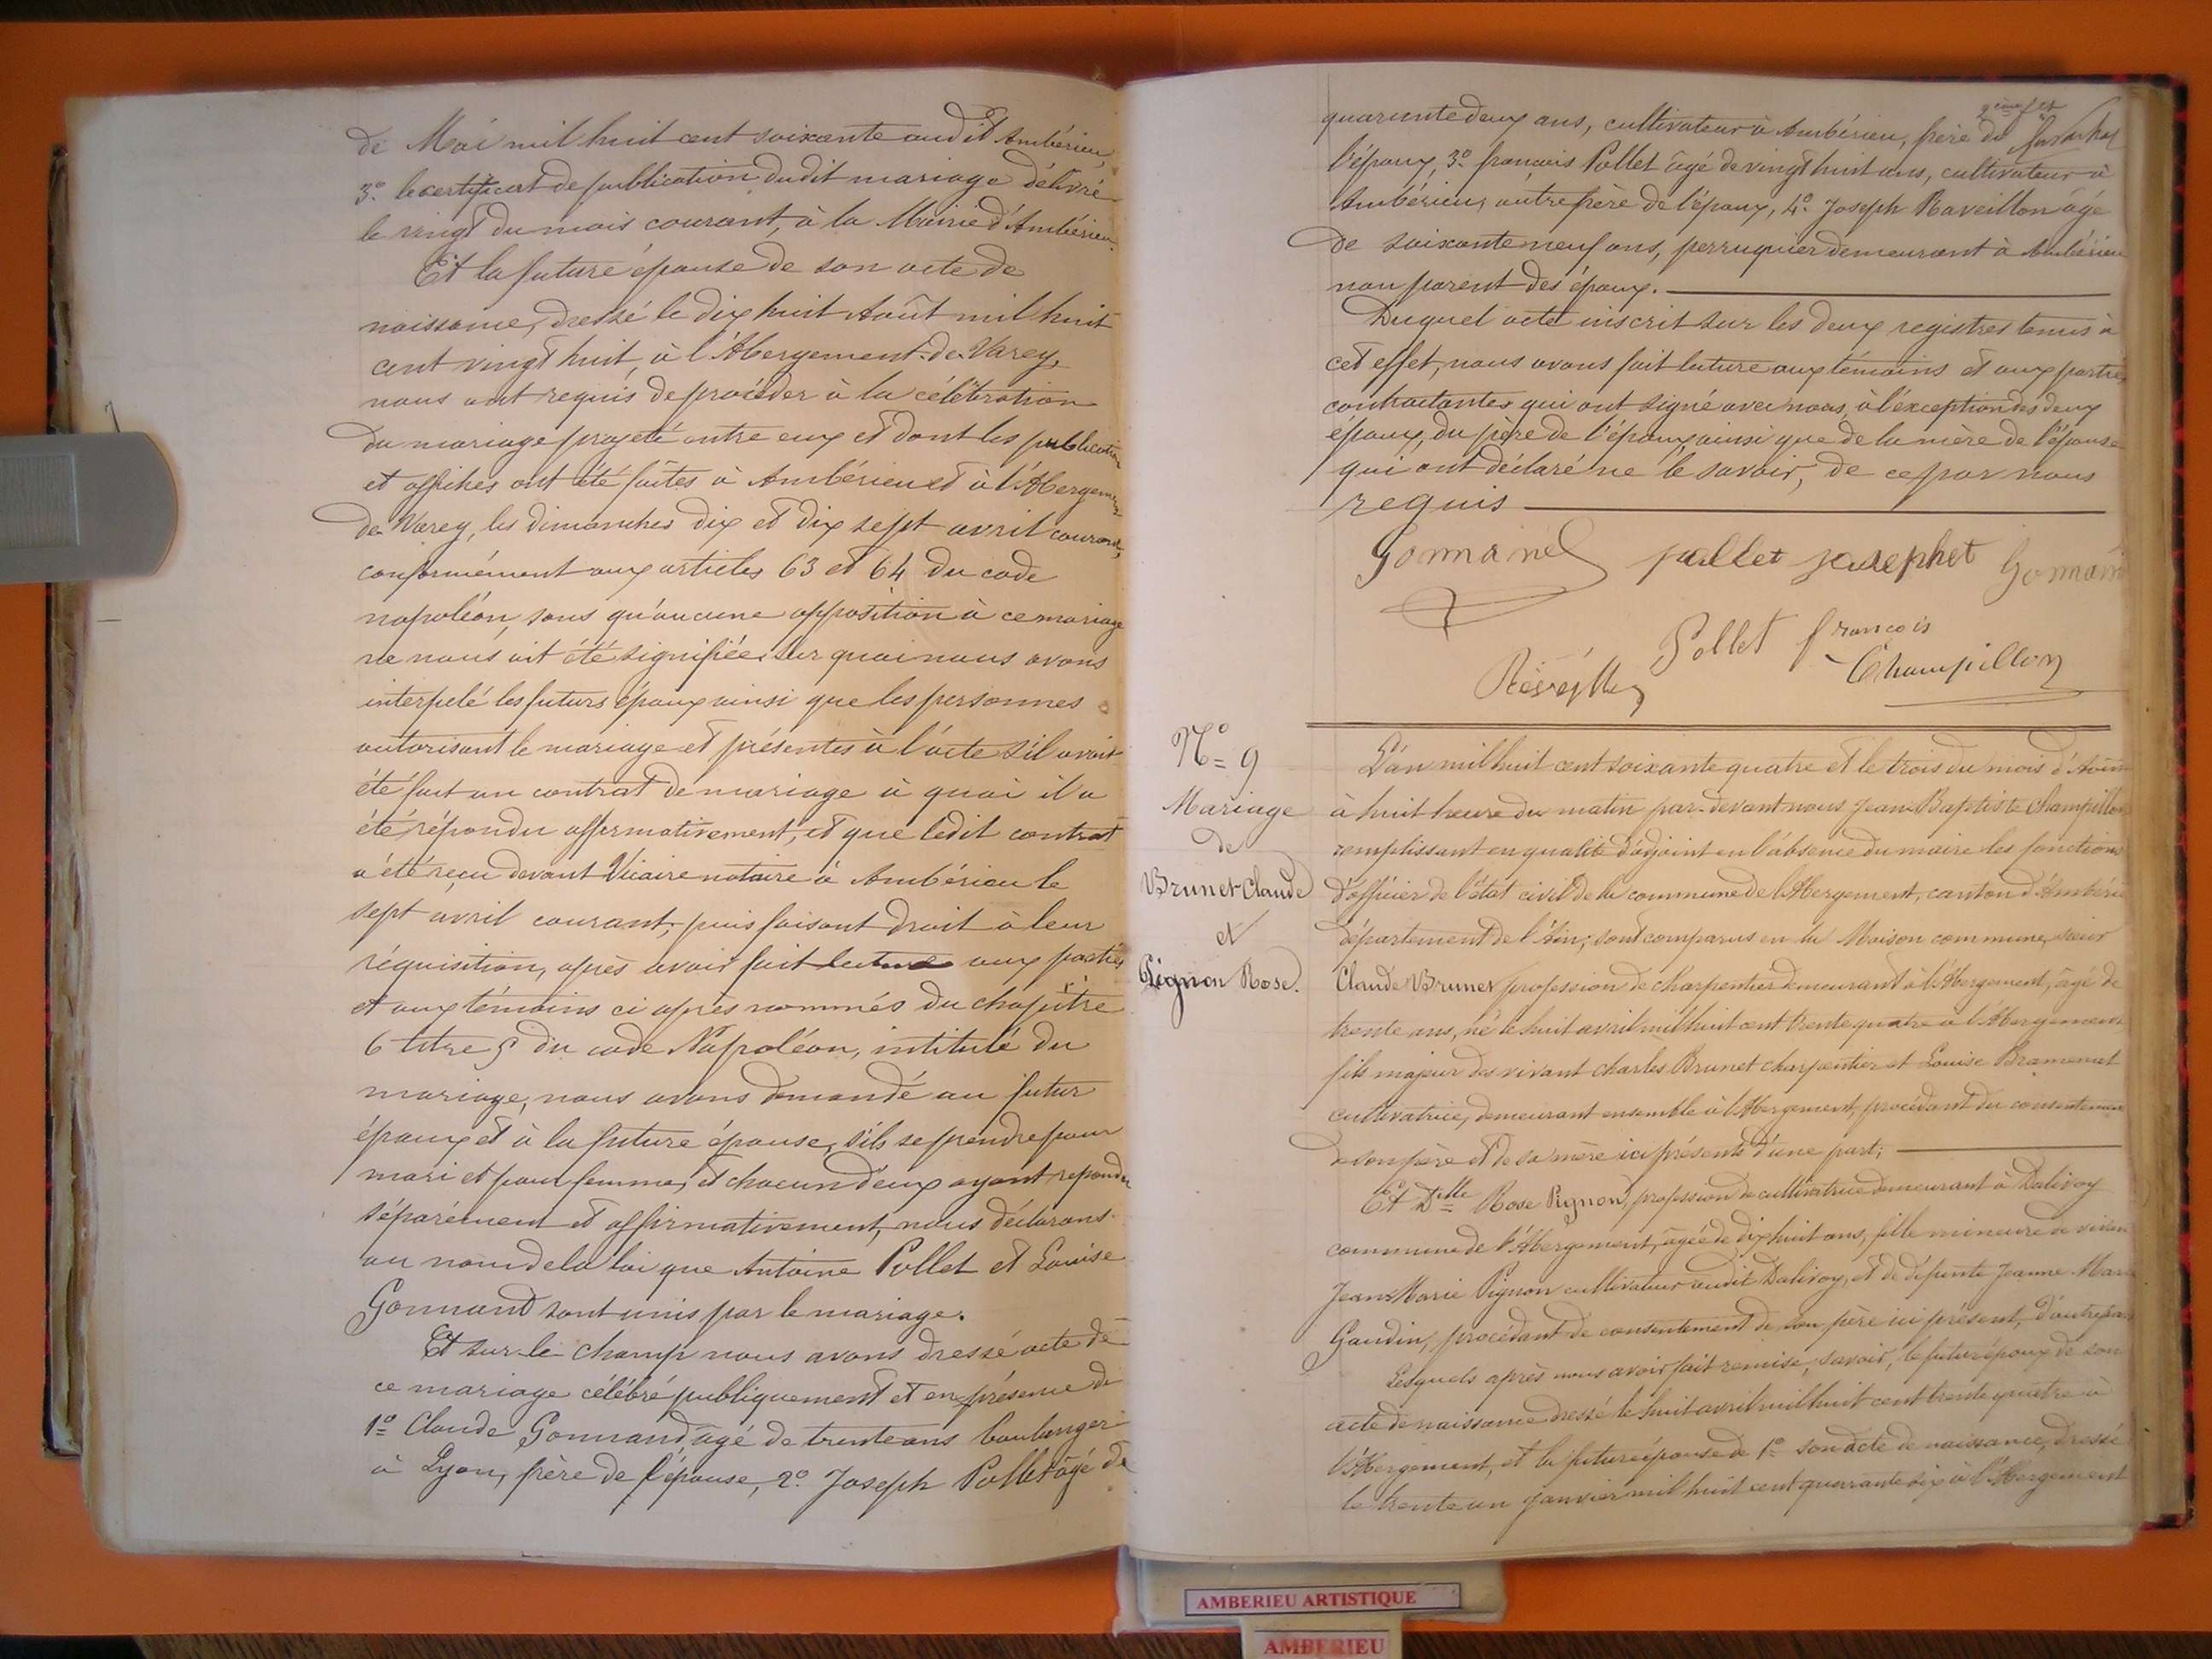 de Mai mil huit cent soixante audit Ambérieu,
3º le certificat de publication dudit mariage délivré
le vingt du mois courant, à la Mairie d'Ambérieu.
Et la future épouse de son acte de
naissance, dressé le dix huit Août mil huit
cent vingt huit, à l'Abergement-de-Varey,
nous ont requis de procéder à la célébration
du mariage projeté entre eux et dont les publications
et affiches ont été faites à Ambérieu et à l'Abergement
de Varey, les dimanches dix et dix sept avril courant,
conformément aux articles 63 et 64 du code
napoléon, sans qu'aucune opposition à ce mariage
ne nous ait été signifiée. Sur quoi nous avons
interpelé les futurs époux ainsi que les personnes
autorisant le mariage et présentes à l'acte s'il avait
été fait un contrat de mariage à quoi il a
été répondu affirmativement, et que ledit contrat
a été reçu devant Vicaire notaire à Ambérieu le
sept avril courant, puis faisant droit à leur
réquisition, après avoir fait lecture aux parties
et aux témoins ci après nommés du chapître
6 titre 5 du code Napoléon, intitulé du
mariage, nous avons demandé au futur
époux et à la future épouse, s'ils se prendre pour
mari et pour femme, et chacun d'eux ayant repondu
séparément et affirmativement, nous déclarons
au nom de la loi que Antoine Pollet et Louise
Gonnand sont unis par le mariage.
Et sur-le-champ nous avons dressé acte de
ce mariage célébré publiquement et en présence de
1º Claude Gonnand âgé de trente ans boulanger
à Lyon, frère de l'épouse, 2º Joseph Pollet âgé de
quarante deux ans, cultivateur à Ambérieu, frère de
l'époux, 3º françois Pollet âgé de vingt huit ans, cultivateur à
Ambérieu, autre frère de l'époux, 4º Joseph Raveillon âgé
de soixante neuf ans, perruquier demeurant à Ambérieu
non parent des époux.
Duquel acte inscrit sur les deux registres tenus à
cet effet, nous avons fait lecture aux témoins et aux parties
contractantes qui ont signé avec nous, à l'exception des deux
époux, du père de l'époux ainsi que de la mère de l'épouse
qui ont déclaré ne le savoir, de ce par nous
requis
pollet josephet
Pollet francois
Champillon
Nº 9
Mariage
de
Brunet Claude
et
Pignon Rose.
L'an mil huit cent soixante quatre et le trois du mois d'
à huit heure du matin par-devant nous Jean-Baptiste Champillon
remplissant en qualité d'adjoint en l'absence du maire les fonctions
d'officier de l'état civil de la commune de l'Abergement, canton d'Ambérieu
département de l'Ain; sont comparus en la Maison commune, sieur
Claude Brunet profession de charpentier demeurant à l'Abergement, âgé de
trente ans, né le huit avril mil huit cent trente quatre à l'Abergement
fils majeur des vivant charles Brunet charpentier et Louise
cultivatrice, demeurant ensemble à l'Abergement, procédant du consentement
de son père et de sa mère ici présents d'une part;
Et Dlle Rose Pignon, profession de cultivatrice demeurant à Dalivoy
commune de l'Abergement, âgée de dix huit ans, fille mineure de vivant
Jean-Marie Pignon cultivateur audit Dalivoy, et de défunte Jeanne Marie
Gaudin, procédant de consentement de son père ici présent, d'autre part
Lesquels après nous avoir fait remise, savoir, le futur époux de son
acte de naissance dressé le huit avril mil huit cent trente quatre à
l'Abergement, et la future épouse de 1º son acte de naissance, dressé
le trente un janvier mil huit cent quarante six à l'Abergement
AMBERIEU ARTISTIQUE
AMBERIEU